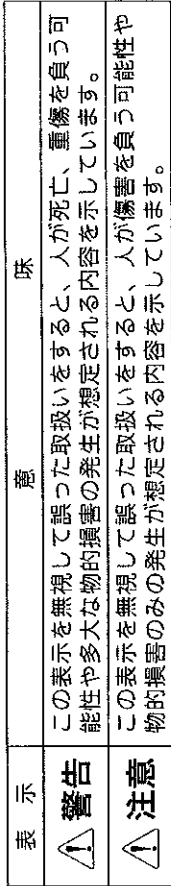 表 示
意 味
⚠ 警告
この表示を無視して誤った取扱いをすると、人が死亡、重傷を負う可
能性や多大な物的損害の発生が想定される内容を示しています。
⚠ 注意
この表示を無視して誤った取扱いをすると、人が傷害を負う可能性や
物的損害のみの発生が想定される内容を示しています。